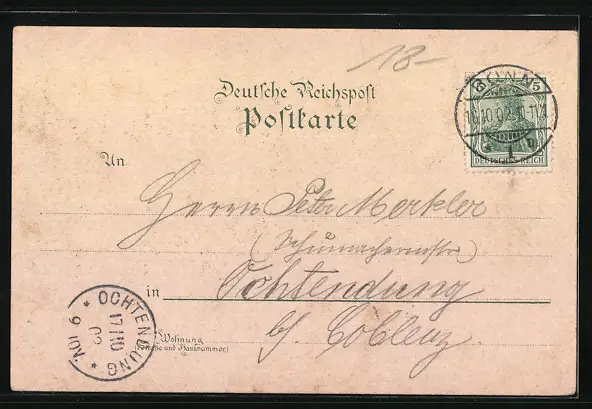 18-
Deutsche Reichspost
Postkarte
BONN
5
10.02. 11-12
1
DEUTSCHES REICH
An
Herrn Peter Merkler
(Schumachermstr.)
in Ochtendung
b/ Coblenz.
Wohnung
(Straße und Hausnummer)
* OCHTENDUNG *
17/10
02
9-10V.